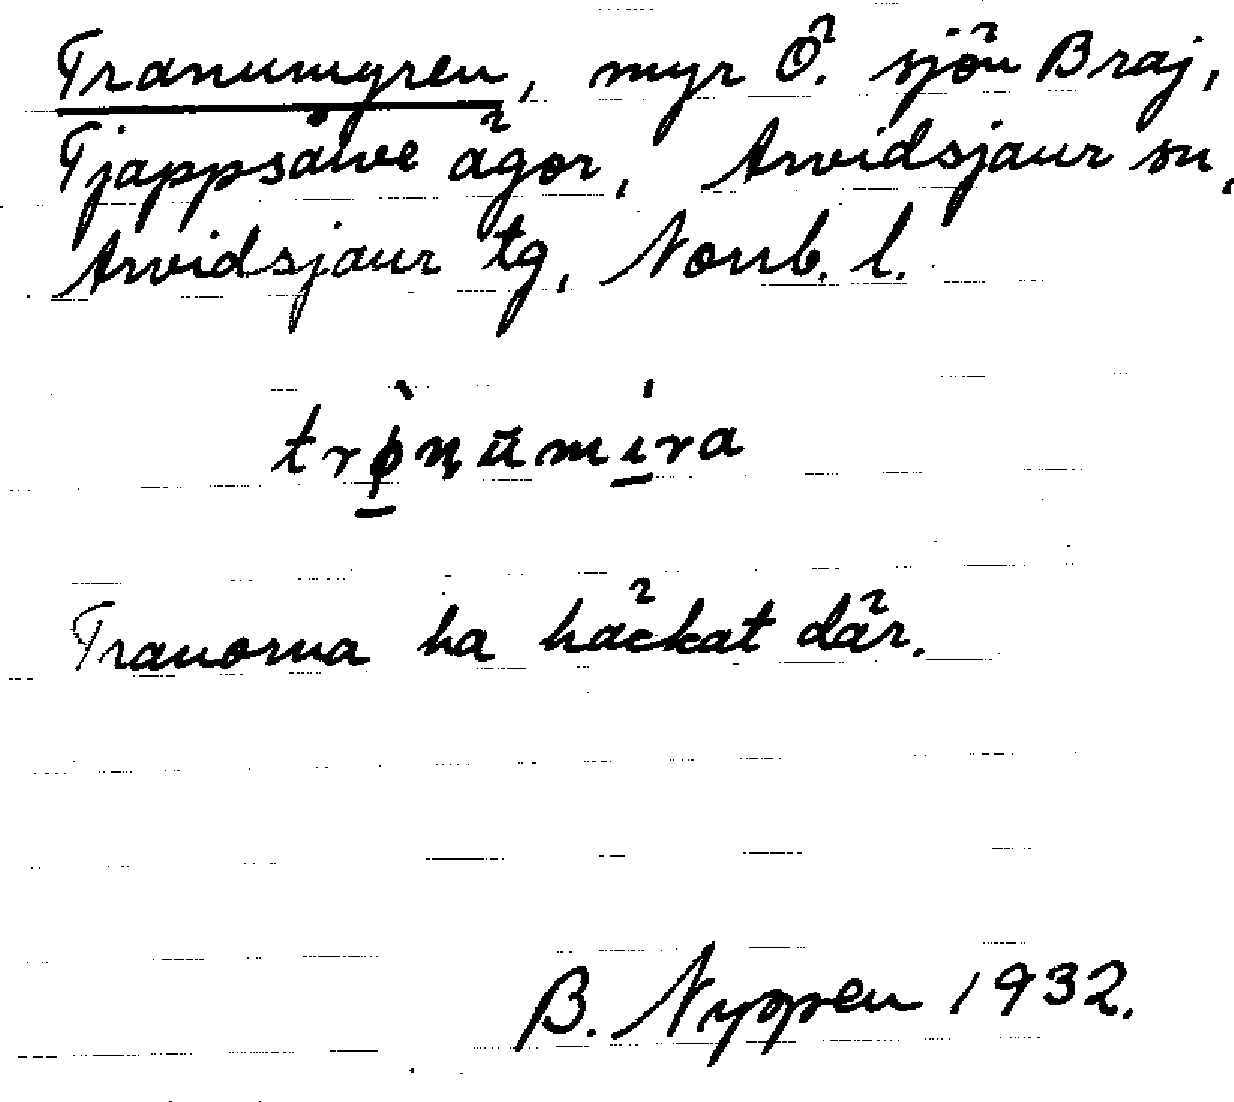 Tranumyren, myr Ö. sjön Braj,
Tjappsåive ägor, Arvidsjaur sn,
Arvidsjaur tg, Norrb. l.
Tranorna ha häckat där.
B. Nyppen 1932.